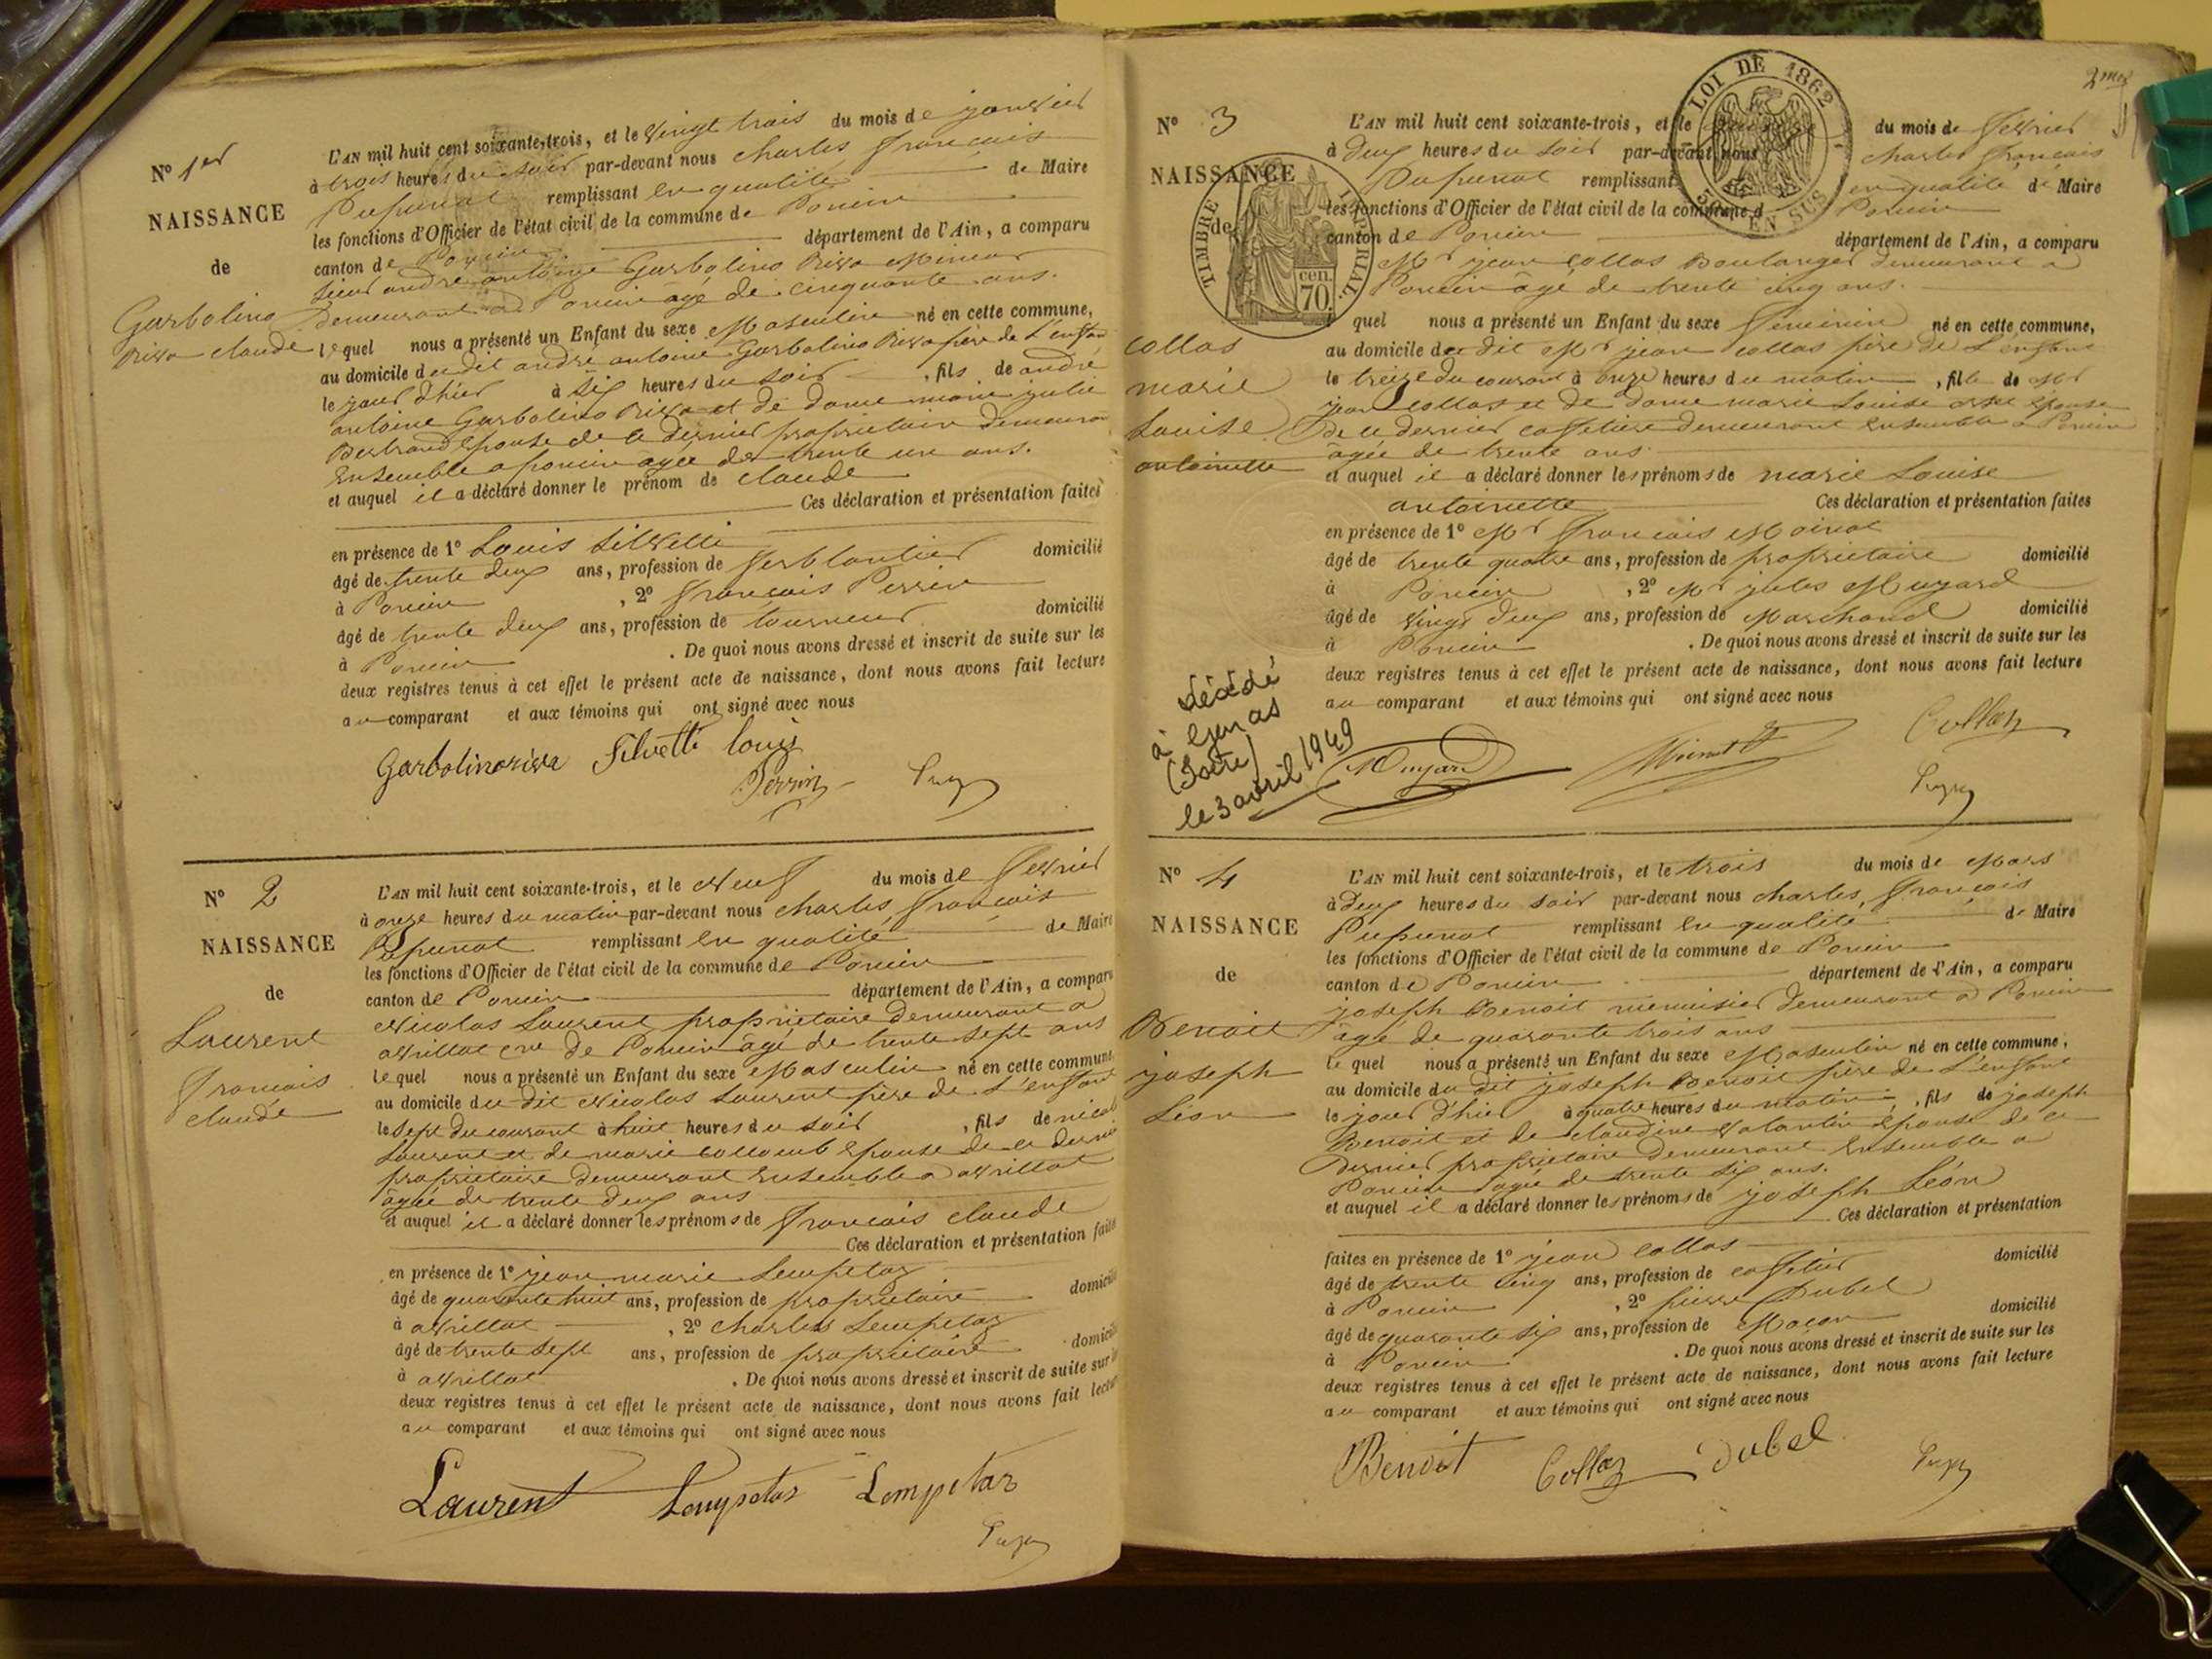 N° 1er
NAISSANCE
de
Garbolino
Riva claude
L'AN mil huit cent soixante-trois, et le Vingt trois du mois de janvier
à trois heures du soir par-devant nous charles françois
remplissant en qualité de Maire
les fonctions d'Officier de l'état civil de la commune de Poncin
canton de Poncin département de l'Ain, a comparu
sieur andré antoine Garbolino Riva Mineur
demeurant à Poncin âgé de cinquante ans.
lequel nous a présenté un Enfant du sexe Masculin né en cette commune,
au domicile du dit andré antoine Garbolino Riva père de l'enfant
le jour d'hier à Six heures du soir, fils de andré
antoine Garbolino Riva et de dame marie julie
Bertrand épouse de ce dernier propriétaire demeurant
Ensemble a poncin agée de trente un ans.
et auquel il a déclaré donner le prénom de claude
Ces déclaration et présentation faites
en présence de 1° Louis Silvetti
âgé de trente deux ans, profession de ferblantier domicilié
à Poncin, 2° françois Perrin
âgé de trente deux ans, profession de tourneur domicilié
à Poncin. De quoi nous avons dressé et inscrit de suite sur les
deux registres tenus à cet effet le présent acte de naissance, dont nous avons fait lecture
au comparant et aux témoins qui ont signé avec nous
Garbolinoriva Silvetti louis
Perrin
N° 2
NAISSANCE
de
Laurent
François
claude
L'AN mil huit cent soixante-trois, et le Neuf du mois de Fevrier
à onze heures du matin par-devant nous charles, françois
remplissant en qualité de Maire
les fonctions d'Officier de l'état civil de la commune de Poncin
canton de Poncin département de l'Ain, a comparu
Nicolas Laurent propriétaire demeurant a
avrillat de Poncin âgé de trente sept ans
lequel nous a présenté un Enfant du sexe Masculin né en cette commune
au domicile du dit Nicolas Laurent père de l'enfant
le Sept du courant à huit heures du soir, fils de nicolas
Laurent et de marie collomb Epouse de ce dernier
propriétaire demeurant ensemble a avrillat
âgée de trente deux ans
et auquel il a déclaré donner les prénoms de françois claude
Ces déclaration et présentation faites
en présence de 1° jean marie Lempetaz
âgé de quarante huit ans, profession de propriétaire domicilié
à avrillat, 2° charles Lempetaz
âgé de trente sept ans, profession de propriétaire domicilié
à avrillat. De quoi nous avons dressé et inscrit de suite sur les
deux registres tenus à cet effet le présent acte de naissance, dont nous avons fait lecture
au comparant et aux témoins qui ont signé avec nous
Laurent Lempetaz Lempetaz
2me
N° 3
NAISSANCE
de
collas
marie
Louise
antoinette
LOI DE 1862
EN SUS
TIMBRE IMPERIAL
70 cen.
L'AN mil huit cent soixante-trois, et le du mois de Fevrier
à deux heures du soir par-devant nous charles françois
remplissant en qualité de Maire
les fonctions d'Officier de l'état civil de la commune d Poncin
canton de Poncin département de l'Ain, a comparu
Mr jean collas Boulanger demeurant a
Poncin âgé de trente cinq ans.
quel nous a présenté un Enfant du sexe féminin né en cette commune,
au domicile du dit Mr jean collas père de l'enfant
le treize du courant à onze heures du matin, fille de Mr
jean collas et de dame marie Louise épouse
De ce dernier cafetière demeurant ensemble a Poncin
âgée de trente ans
et auquel il a déclaré donner les prénoms de marie Louise
antoinette Ces déclaration et présentation faites
en présence de 1° Mr françois Moinat
âgé de trente quatre ans, profession de propriétaire domicilié
à Poncin, 2° Mr jules Muyard
âgé de vingt deux ans, profession de Marchand domicilié
à Poncin. De quoi nous avons dressé et inscrit de suite sur les
deux registres tenus à cet effet le présent acte de naissance, dont nous avons fait lecture
au comparant et aux témoins qui ont signé avec nous
décédé
à Genas
(Isère)
le 3 avril 1949
Muyard Moinat Collaz
N° 4
NAISSANCE
de
Benoit
joseph
Léon
L'AN mil huit cent soixante-trois, et le trois du mois de Mars
à deux heures du soir par-devant nous charles, françois
remplissant en qualité de Maire
les fonctions d'Officier de l'état civil de la commune de Poncin
canton de Poncin département de l'Ain, a comparu
joseph Benoit menuisier demeurant a Poncin
âgé de quarante trois ans
le quel nous a présenté un Enfant du sexe Masculin né en cette commune,
au domicile du dit joseph Benoit père de l'enfant
le jour d'hier à quatre heures du matin, fils de joseph
Benoit et de claudine Valantin épouse de ce
Dernier propriétaire demeurant ensemble a
Poncin agée de trente six ans.
et auquel il a déclaré donner les prénoms de joseph Léon
Ces déclaration et présentation
faites en présence de 1° jean collas
âgé de trente cinq ans, profession de cafetier domicilié
à Poncin, 2° pierre Dubel
âgé de quarante six ans, profession de Maçon domicilié
à Poncin. De quoi nous avons dressé et inscrit de suite sur les
deux registres tenus à cet effet le présent acte de naissance, dont nous avons fait lecture
au comparant et aux témoins qui ont signé avec nous
Benoit Collaz Dubel